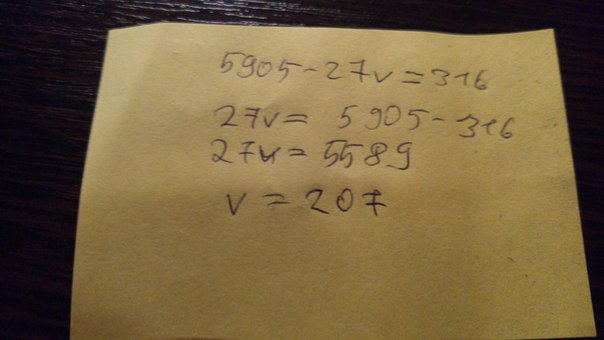 5905-27v=316
27v= 5905-316
27v=5589
v=207